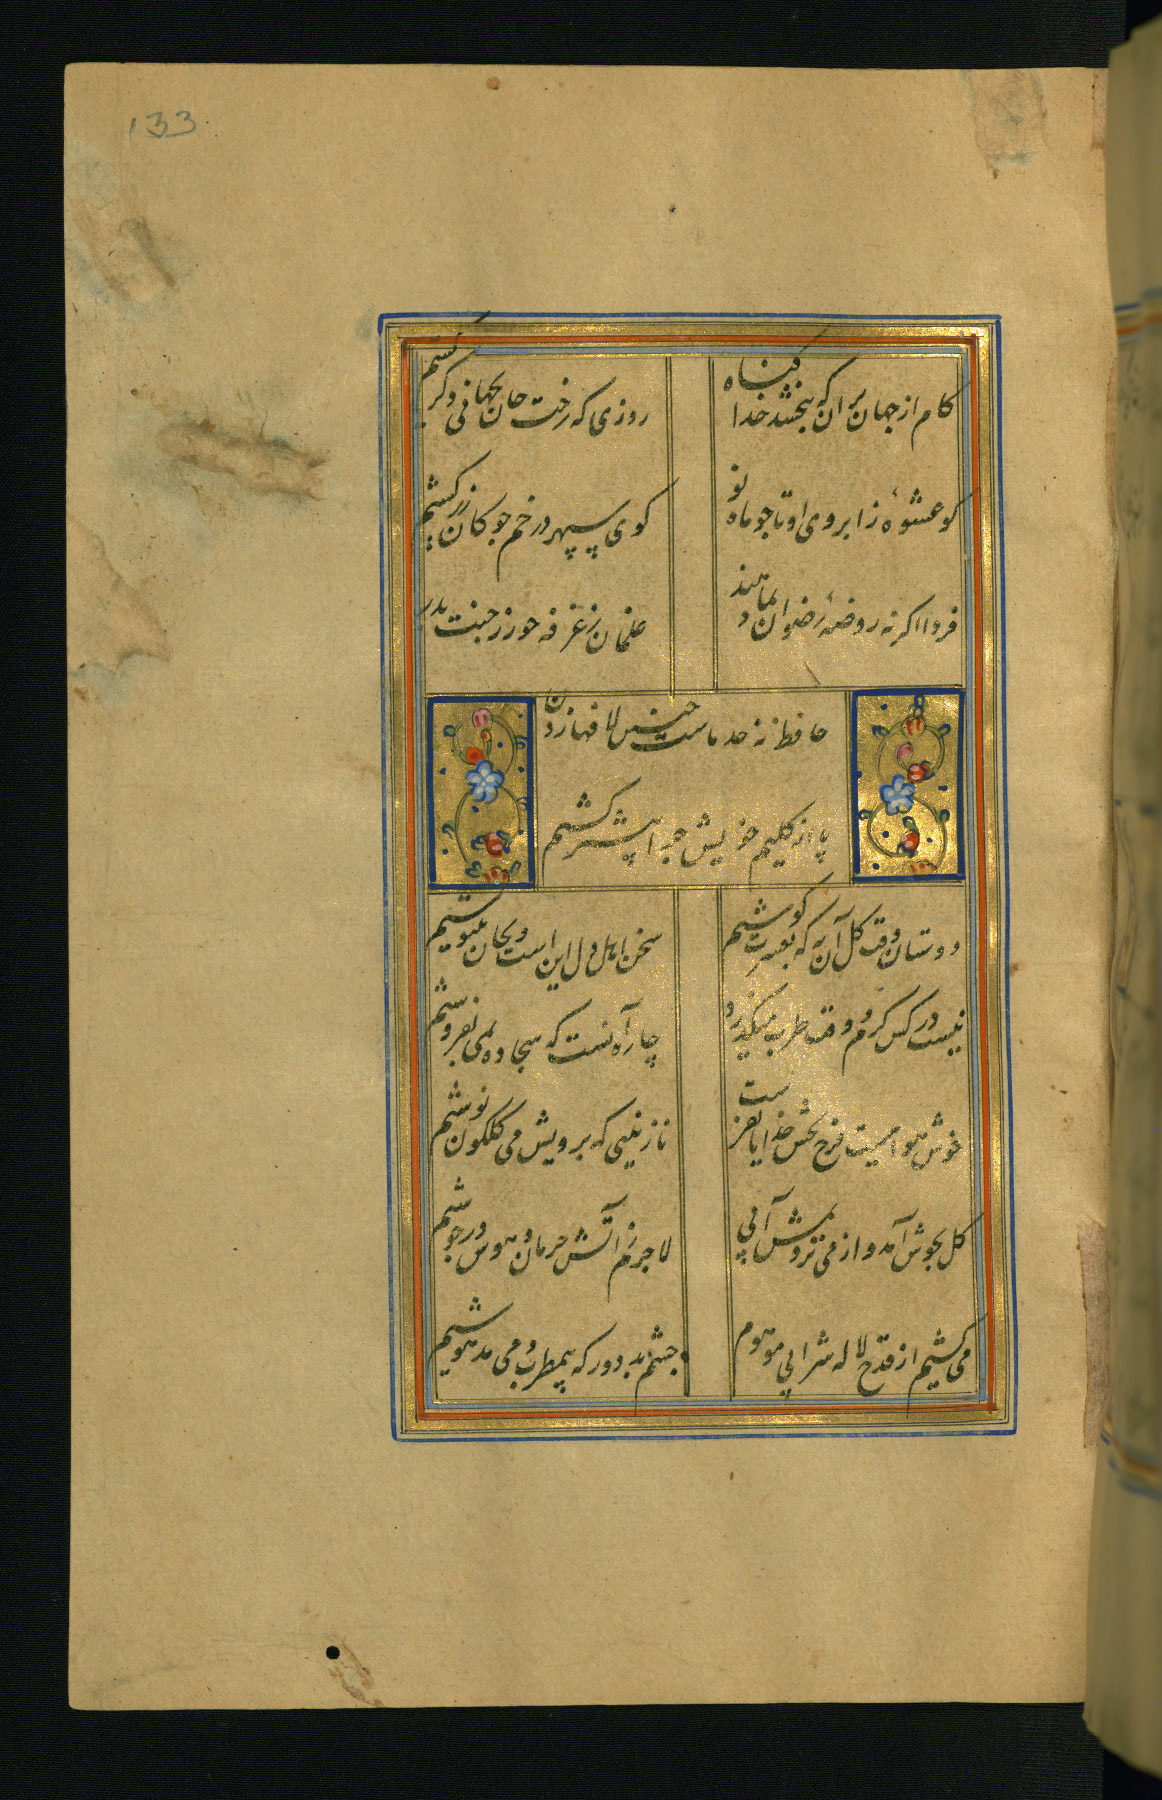 133
کام از جهان بران که ببخشد خدا گناه
روزی که رخت جان بجهانی دگر کشم
کو عشوهٔ ز ابروی او تا چو ماه نو
کوی سپهر در خم چوکان زر کشیم
فردا اکر نه روضهٔ رضوان بما دهند
غلمان ز غرفه حور ز جنت بدر
حافظ نه حد ماست چنین لافها زدن
پا از کلیم خویش چرا پیشتر کشیم
دوستان وقت کل آن به که بعشرت کوشیم
سخن اهل دل این است و بجان بنیوشیم
نیست در کس کرم و وقت طرب میکذرد
چاره آنست که سجاده بمی بفروشیم
خوش هواییست فرح بخش خدایا بفرست
نازنینی که برویش می کلکون نوشیم
کل بجوش آمد و از می نزدیمش آبی
لاجرم ز آتش حرمان و هوس در جوشیم
می کشیم از قدح لاله شرابی موهوم
چشم بد دور که بیمطرب و می مدهوشیم